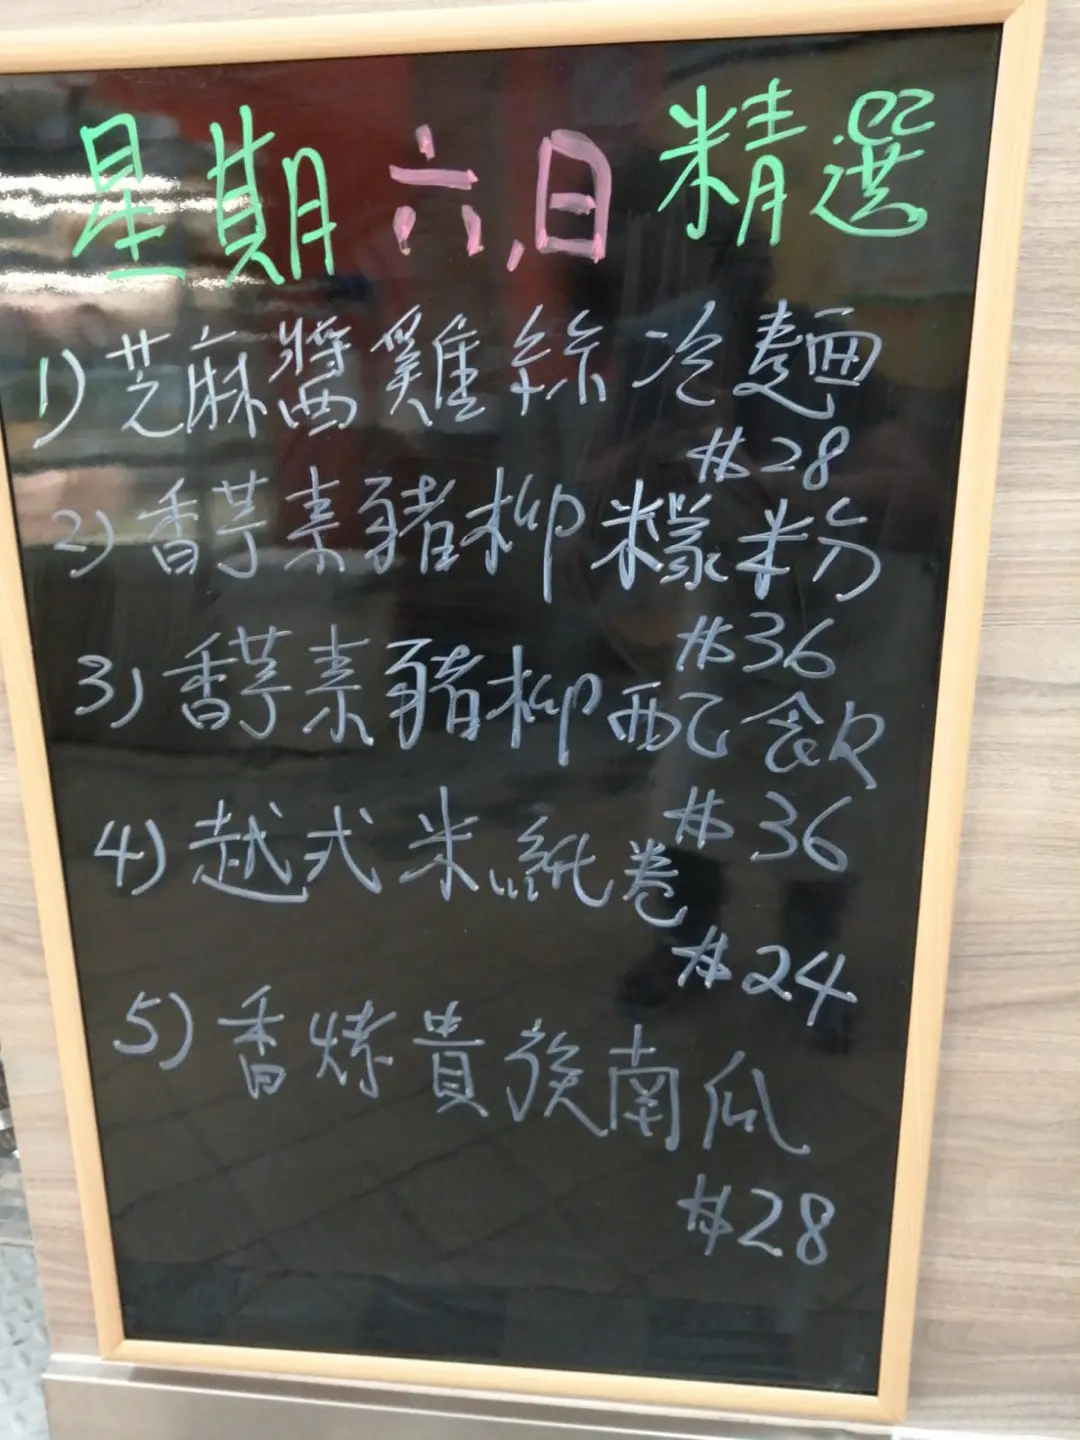 星期六,日 精選
1)芝麻醬雞絲冷麵
$28
2)香芋素豬柳米線米粉
$36
3)香芋素豬柳配飲
$36
4)越式米紙卷
$24
5)香煉貴族南瓜
$28